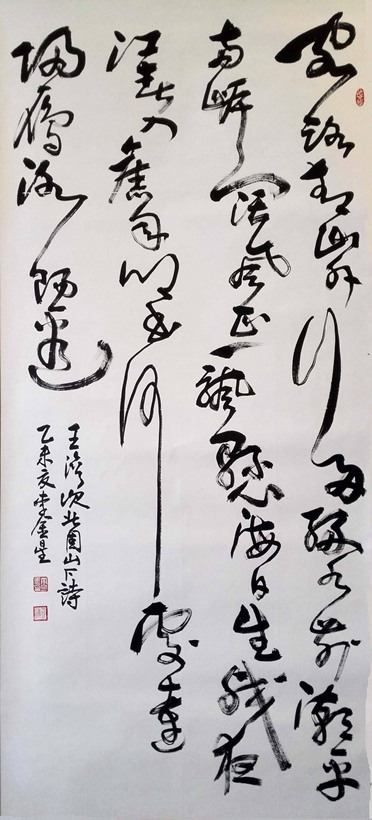 客路青山外行舟綠水前潮平
兩岸闊風正一帆懸海日生殘夜
江春入舊年鄉書何處達
歸雁洛陽邊
王灣次北固山下詩
乙未夏李金星